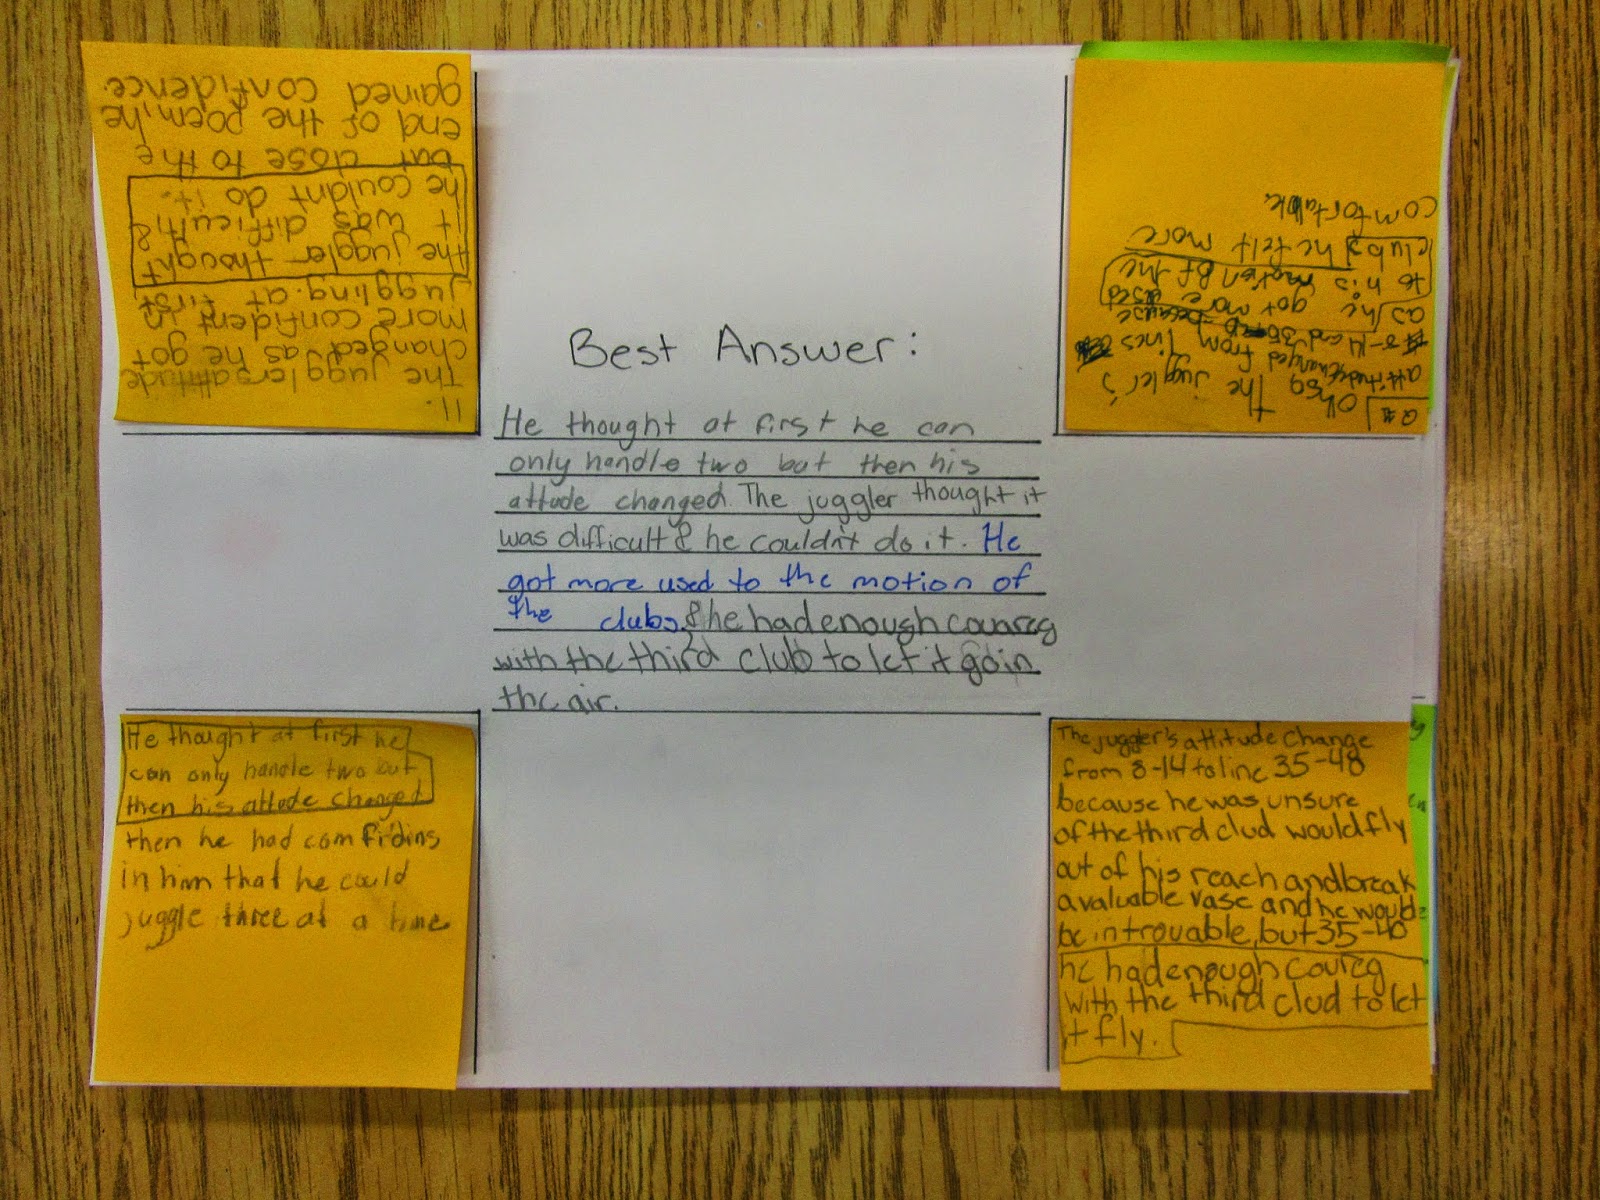 11.
The jugglers attitude
changed as he got
more confident in
juggling. at first
the juggler thought
it was difficult &
he couldnt do it.
but close to the
end of the poem, he
gained confidence.
The juggler's
attitude changed from lines
8-14 and 35 because
as he got more used
to his motion of the
clubs he felt more
comfortable
Best Answer:
He thought at first he can
only handle two but then his
attude changed. The juggler thought it
was difficult & he couldn't do it. He
got more used to the motion of
the clubs & he had enough courcg
with the third club to let it go in
the air.
He thought at first he
can only handle two but
then his attude changed
then he had comfidins
in him that he could
juggle three at a time
The juggler's attitude change
from 8-14 to line 35-48
because he was unsure
of the third clud would fly
out of his reach and break
a valuable vase and he would
be introuvable, but 35-48
he had enough courcg
with the third clud to let
it fly.